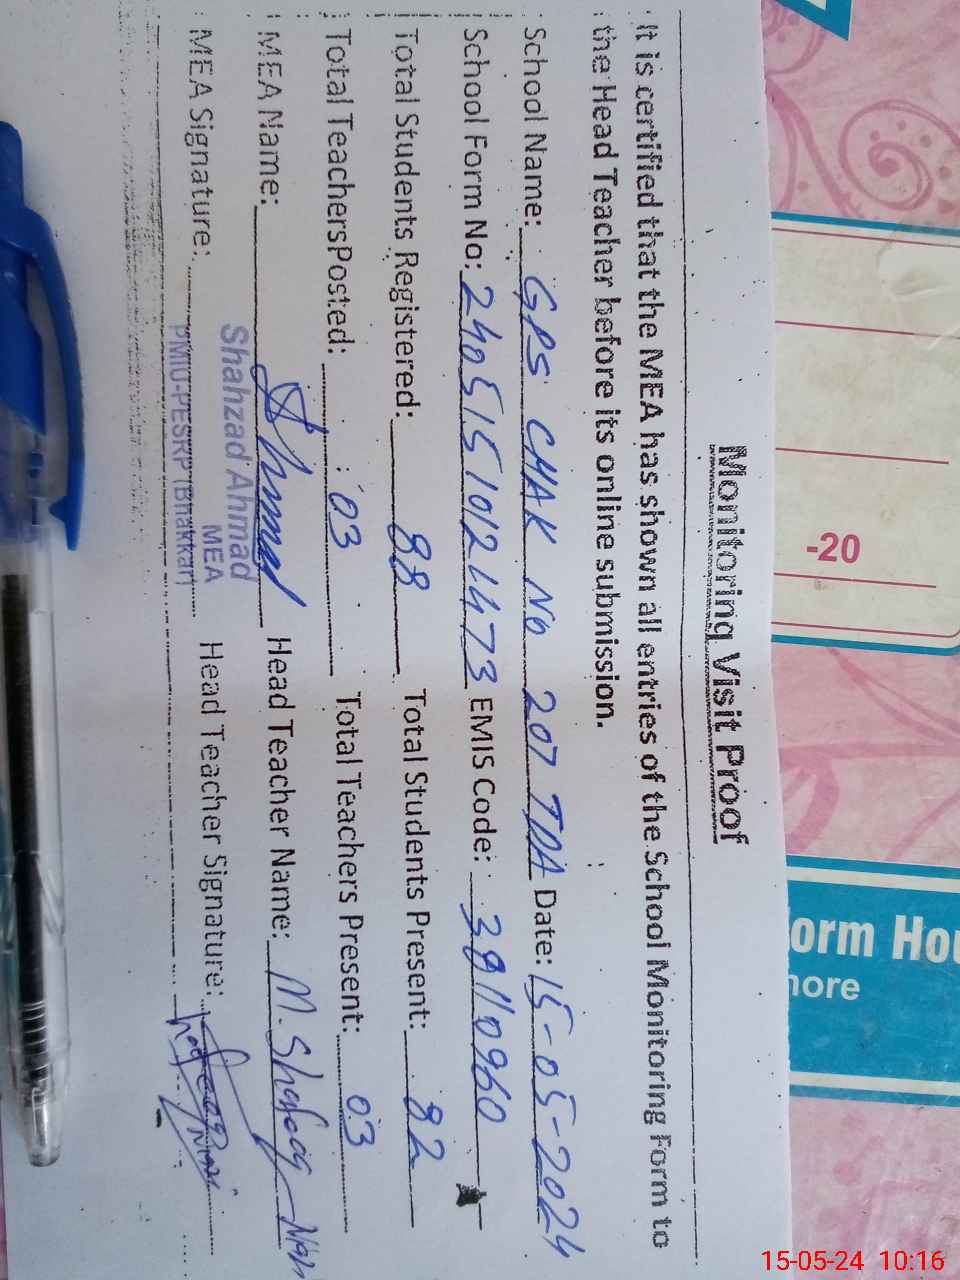 Monitoring Visit Proof
It is certified that the MEA has shown all entries of the School Monitoring Form to
the Head Teacher before its online submission.
School Name: GPS CHAK No 207 TDA Date: 15-05-2024
School Form No: 2405151012 1473 EMIS Code: 39110960
Total Students Registered: 88 Total Students Present: 82
Total TeachersPosted: 03 Total Teachers Present: 03
MEA Name: Head Teacher Name: M. Shafiq
Shahzad Ahmad
MEA
PMIU-PESRP (Bhakkar)
MEA Signature: Head Teacher Signature:
-20
orm Hou
hore
15-05-24 10:16